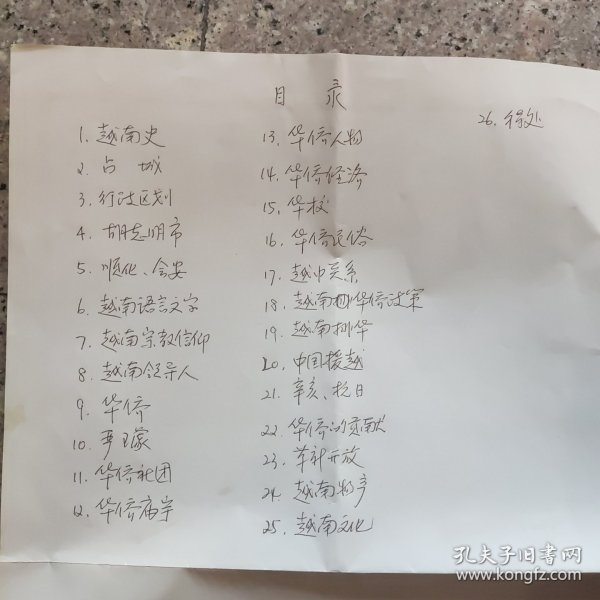 目 录
1. 越南史
2. 占 城
3. 行政区划
4. 胡志明市
5. 顺化、会安
6. 越南语言文字
7. 越南宗教信仰
8. 越南领导人
9. 华侨
10.
11. 华侨社团
12. 华侨庙宇
13. 华侨人物
14. 华侨经济
15. 华校
16. 华侨民俗
17. 越中关系
18. 越南 华侨政策
19. 越南排华
20. 中国援越
21. 辛亥、抗日
22. 华侨的贡献
23. 革新开放
24. 越南物产
25. 越南文化
26.
孔夫子旧书网
www.kongfz.com